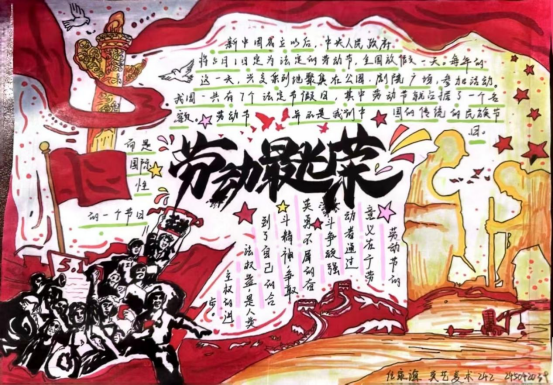 新中国成立以后,中央人民政府
将5月1日定为法定的劳动节,全国放假一天。每年的
这一天,兴高采烈地聚集在公园、剧院、广场,参加活动。
我国一共有7个法定节假日,其中劳动节就占据了一个名
额。劳动节 并不是我们中 国的传统的民族节
日
而是
国际
性
的一个节日
劳动最光荣
劳动节的
意义在于劳
动者通过
斗争顽强
英勇不屈的奋
斗精神争取
到了自己的合
法权益是人类
主权的进
步
5.1
美艺美术242